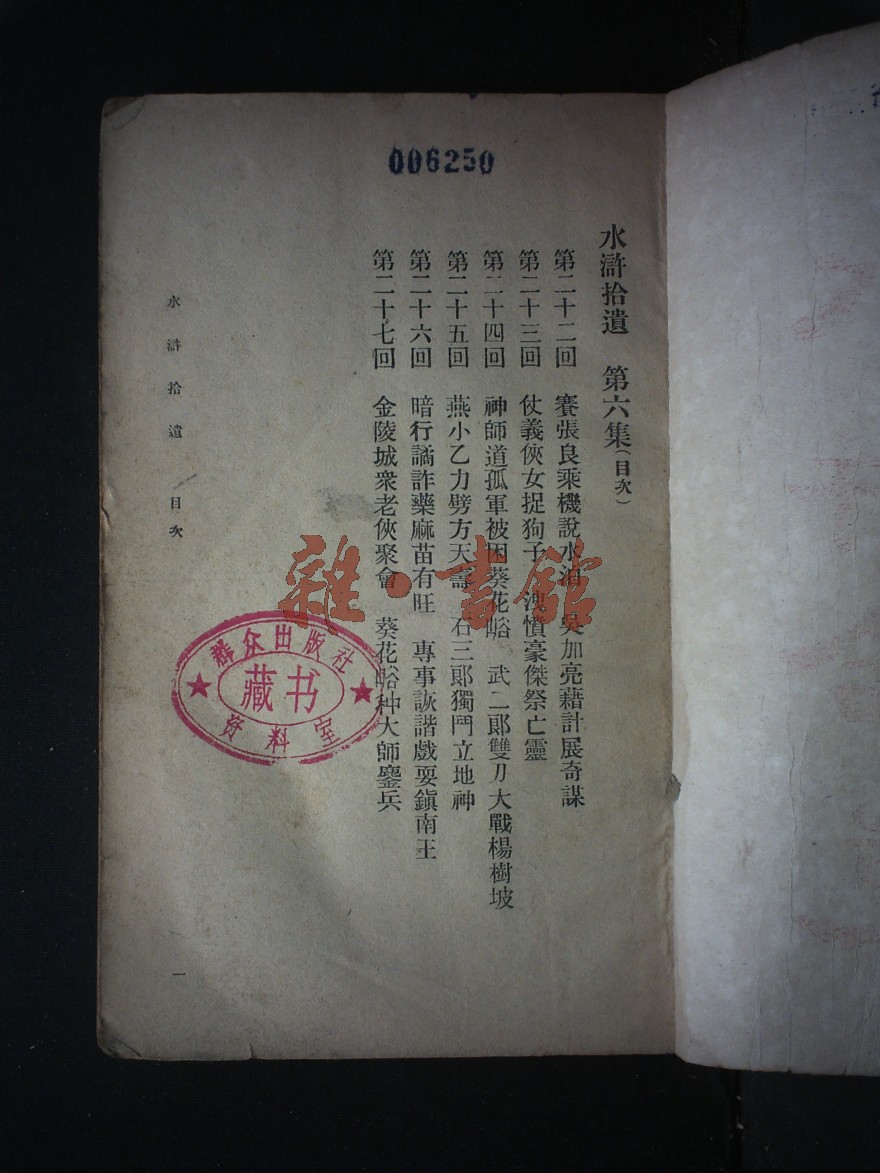 006250
水滸拾遺　第六集（目次）
第二十二回　賽張良乘機說水泊　吳加亮藉計展奇謀
第二十三回　仗義俠女捉狗子　洩憤豪傑祭亡靈
第二十四回　神師道孤軍被困葵花峪　武二郎雙刀大戰楊樹坡
第二十五回　燕小乙力劈方天壽　石三郎獨鬥立地神
第二十六回　暗行譎詐藥麻苗有旺　專事詼諧戲耍鎮南王
第二十七回　金陵城衆老俠聚會　葵花峪种大師鏖兵
水滸拾遺　目次
一
群众出版社
藏书
资料室
雜·書館